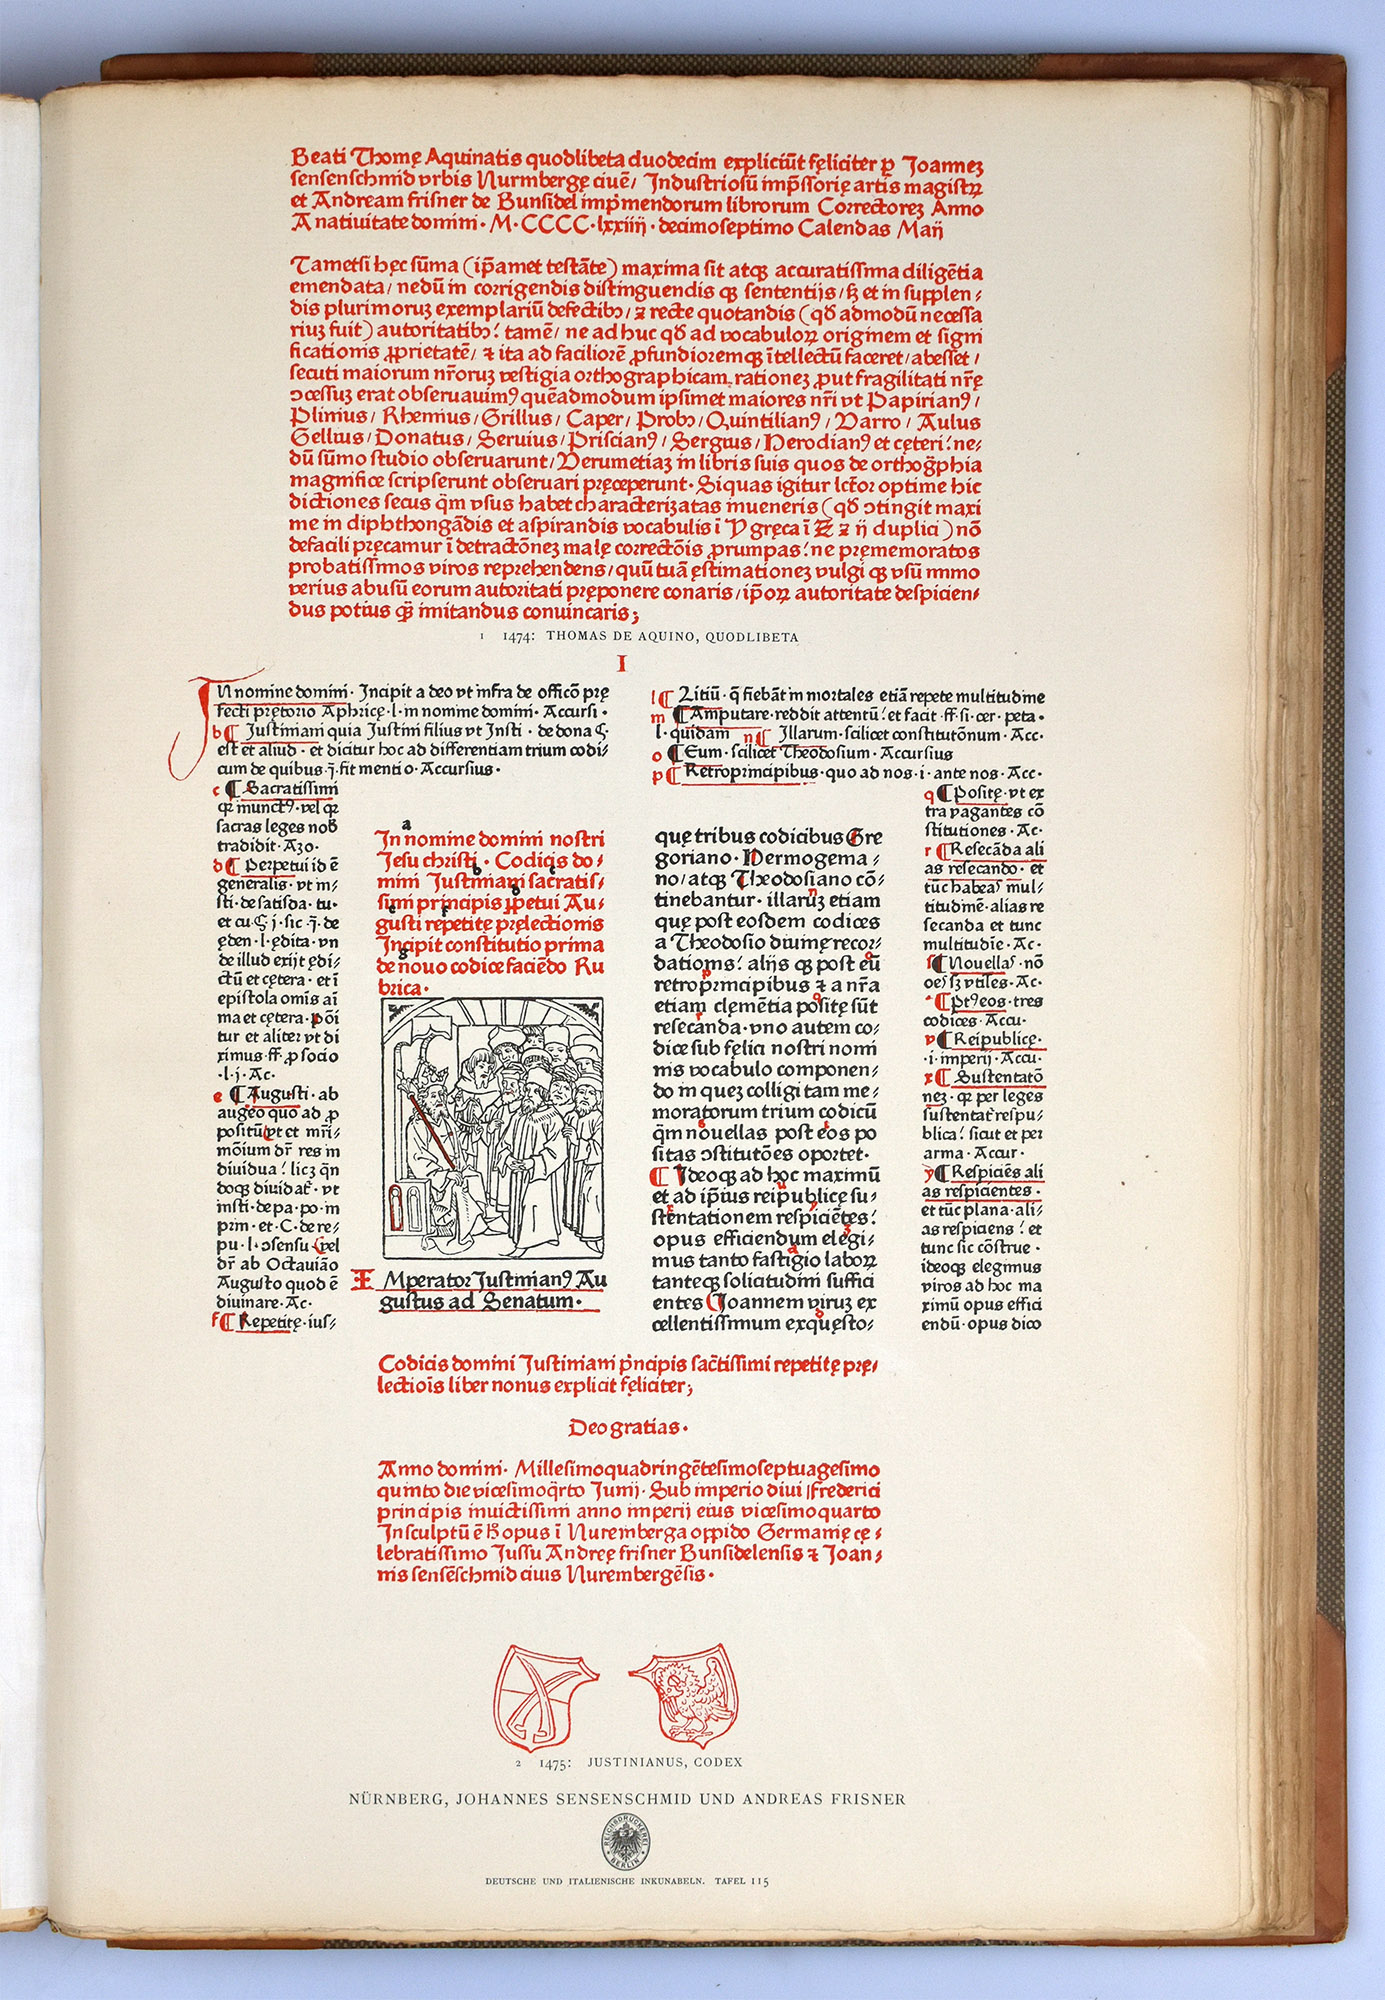 Beati Thomę Aquinatis quodlibeta duodecim expliciūt fęliciter ꝑ Joannez
sensenschmid vrbis Nurmbergę ciuē/ Industriosū imp̄ssorię artis magistꝝ
et Andream frisner de Bunsidel imp̄mendorum librorum Correctorez Anno
A natiuitate domini· M·CCCC·lxxiiij· decimoseptimo Calendas Maij
Tametsi hęc sūma (ip̄amet testāte) maxima sit atqꝫ accuratissima diligētia
emendata/ nedū in corrigendis distinguendis qꝫ sententijs/ sꝫ et in supplen⸗
dis plurimoruꝫ exemplariū defectibꝰ/ ⁊ recte quotandis (qd̄ admodū necessa
riuꝫ fuit) autoritatibꝰ: tamē/ ne ad huc qd̄ ad vocabuloꝝ originem et signi
ficationis ꝓprietatē/ ⁊ ita ad faciliorē ꝓfundioremqꝫ ītellectū faceret/ abesset/
secuti maiorum nr̄oruꝫ vestigia orthographicam rationeꝫ ꝓut fragilitati nr̄ę
ↄcessuꝫ erat obseruauimꝰ quēadmodum ipsimet maiores nr̄i vt Papirianꝰ/
Plinius/ Rhemius/ Grillus/ Caper/ Probꝰ/ Quintilianꝰ/ Varro/ Aulus
Gellius/ Donatus/ Seruius/ Priscianꝰ/ Sergius/ Herodianꝰ et cęteri: ne⸗
dū sūmo studio obseruarunt/ Verumetiaꝫ in libris suis quos de orthogr̄phia
magnifice scripserunt obseruari pręceperunt· Siquas igitur lctōr optime hic
dictiones secus qm̄ vsus habet characterizatas inueneris (qd̄ ↄtingit maxi
me in diphthongādis et aspirandis vocabulis ī Y gręca ī Z ⁊ ij duplici) nō
defacili pręcamur ī detractōneꝫ malę correctōis ꝓrumpas: ne pręmemoratos
probatissimos viros reprehendens/ quū tuā ęstimationeꝫ vulgi qꝫ vsū immo
verius abusū eorum autoritati pręponere conaris/ ip̄oꝝ autoritate despicien⸗
dus potius qꝫ̄ imitandus conuincaris;
1 1474: THOMAS DE AQUINO, QUODLIBETA
I
In nomine domini· Incipit a deo vt infra de officō prę
fecti pretorio Aphricę·l·in nomine domini· Accursi·
b ¶ Justiniani quia Justini filius vt Insti·de dona §·
est et aliud·et dicitur hoc ad differentiam trium codi⸗
cum de quibus·j̄·fit mentio·Accursius·
c ¶ Sacratissimi
qꝛ munctꝰ·vel qꝛ
sacras leges nob̄
tradidit·Azo·
d ¶ Perpetui id ē
generalis·vt in⸗
sti·de satisda·tu·
et cu·§ j·sic·j̄·de
ęden·l·ędita·vn
de illud exijt ędi⸗
ctū et cętera·et ī
epistola omīs aī
ma et cętera·pōi
tur et aliter vt di
ximus·ff·ꝓ socio
·l·j·Ac·
e ¶ Augusti·ab
augeo quo ad ꝓ
positū vt et mr̄i⸗
mōium dr̄ res in
diuidua: licꝫ qn̄
doqꝫ diuidat·vt
insti·de pa·po·in
prin·et·C·de re⸗
pu·l·ↄsensu vel
dr̄ ab Octauiāo
Augusto quod ē
diuinare·Ac·
f ¶ Repetitę·ius⸗
a
In nomine domini nostri
Jesu christi· Codicis do⸗
mini Justiniani sacratis⸗
simi principis ꝑpetui Au⸗
gusti repetitę pręlectionis
Incipit constitutio prima
de nouo codice faciēdo Ru
brica·
IMperator Justinianꝰ Au
gustus ad Senatum·
l ¶ Litiū·q̄ fiebāt in mortales etiā repete multitudine
m ¶ Amputare·reddit attentū: et facit·ff·si·cer·peta·
l·quidam n ¶ Illarum·scilicet constitutōnum·Acc·
o ¶ Eum·scilicet Theodosium·Accursius
p ¶ Retroprincipibus·quo ad nos·i·ante nos·Acc·
quę tribus codicibus Gre
goriano· Hermogema⸗
no/ atqꝫ Theodosiano cō⸗
tinebantur·illaruꝫ etiam
quę post eosdem codices
a Theodosio diuinę recor⸗
dationis: alijs qꝫ post eū
retroprincipibus ⁊ a nr̄a
etiam clęmētia posite sūt
resecanda·vno autem co⸗
dice sub fęlici nostri nomi
nis vocabulo componen⸗
do in quez colligi tam me⸗
moratorum trium codicū
qm̄ nouellas post eos po
sitas ↄstitutōes oportet·
¶ Ideoqꝫ ad hoc maximū
et ad ip̄ius reipublicę su⸗
stentationem respiciētes:
opus efficiendum elegi⸗
mus tanto fastigio laboꝝ
tanteqꝫ solicitudini suffici
entes Joannem viruꝫ ex
cellentissimum exquęsto⸗
q ¶ Positę·vt ex
tra vagantes cō
stitutiones·Ac·
r ¶ Resecāda ali
as resecando·et
tūc habeas mul⸗
titudinē·alias re
secanda et tunc
multitudīe·Ac·
s ¶ Nouellas·nō
oēs sꝫ vtiles·Ac·
t ¶ Pꝰ eos·tres
codices·Accu·
v ¶ Reipublicę·
·i·imperij·Accu·
x ¶ Sustentatō
neꝫ·qꝛ per leges
sustentat̄ respu⸗
blica: sicut et per
arma·Accur·
y ¶ Respiciēs ali
as respicientes·
et tūc plana·ali⸗
as respiciens: et
tunc sic cōstrue·
ideoqꝫ elegimus
viros ad hoc ma
ximū opus effici
endū·opus dico
Codicis domini Justiniani p̄ncipis sac̄tissimi repetitę pre⸗
lectiōis liber nonus explicit fęliciter;
Deo gratias·
Anno domini· Millesimoquadringētesimoseptuagesimo
quinto die vicesimoq̄rto Junij·Sub imperio diui Frederici
principis inuictissimi anno imperij eius vicesimoquarto
Insculptū ē h̄ opus ī Nuremberga oppido Germanię cę⸗
lebratissimo Jussu Andreę frisner Bunsidelensis ⁊ Joan⸗
nis sensēschmid ciuis Nurembergēsis·
2 1475: JUSTINIANUS, CODEX
NÜRNBERG, JOHANNES SENSENSCHMID UND ANDREAS FRISNER
REICHSDRUCKEREI BERLIN
DEUTSCHE UND ITALIENISCHE INKUNABELN. TAFEL 115